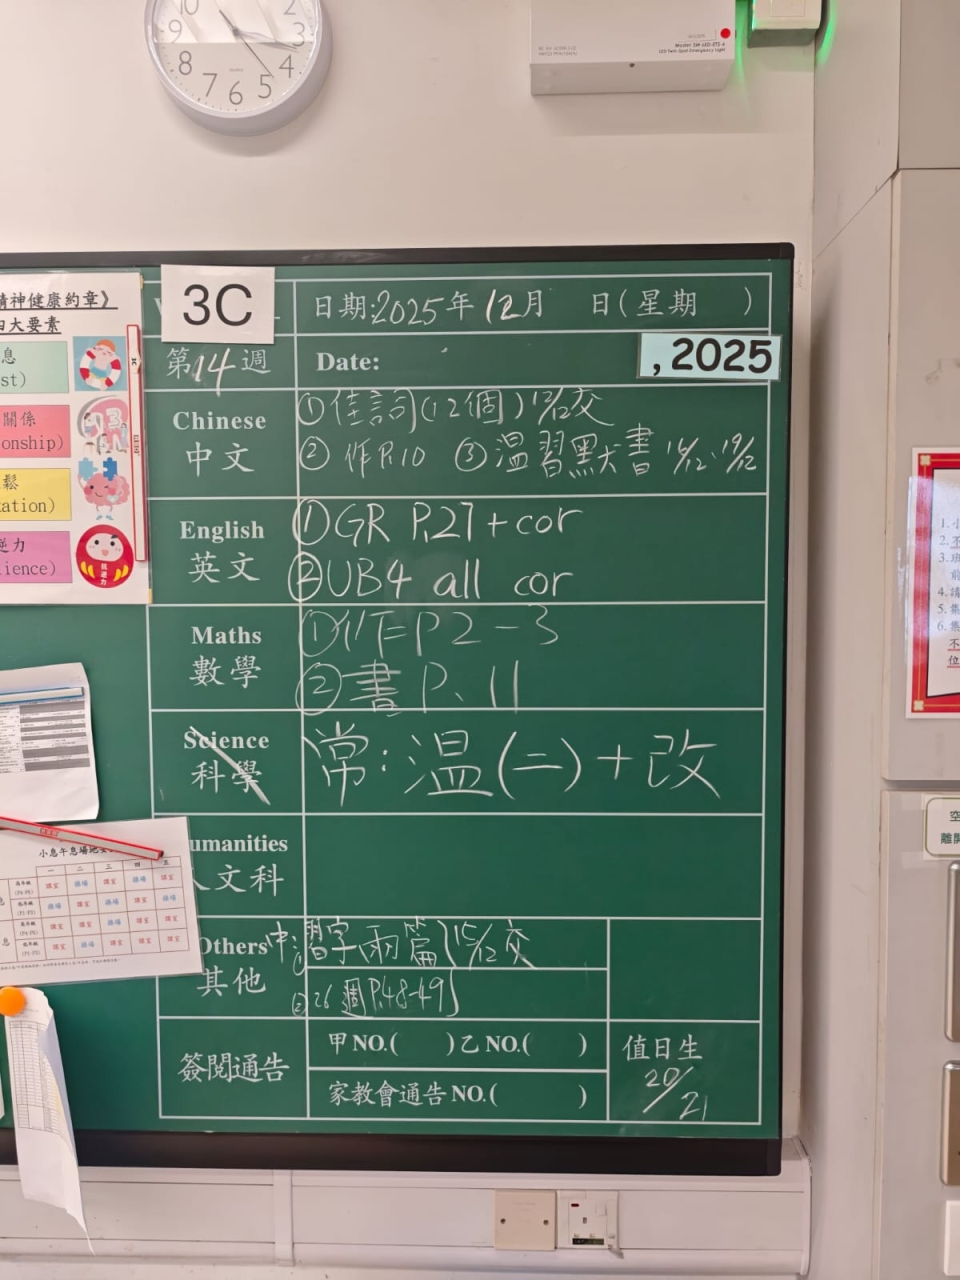 10
2
3
8
4
7
6
5
精神健康約章》
四大要素
息
st)
關係
onship)
鬆
ation)
逆力
ience)
抗逆力
3C
日期:2025年12月 日(星期 )
第14週
Date:
, 2025
Chinese
中文
①佳詞(12個)12/12交
②作P.10 ③溫習默書 15/12、19/12
English
英文
①GR P.27+cor
②UB4 all cor
Maths
數學
①作P2-3
②書P.11
Science
科學
常:溫(二)+改
umanities
人文科
Others
其他
中:習字兩篇 15/12交
②26週P.48-49
簽閱通告
甲NO.( )乙NO.( )
家教會通告NO.( )
值日生
20/21
小息午息場地
一 二 三 四 五
空
離開